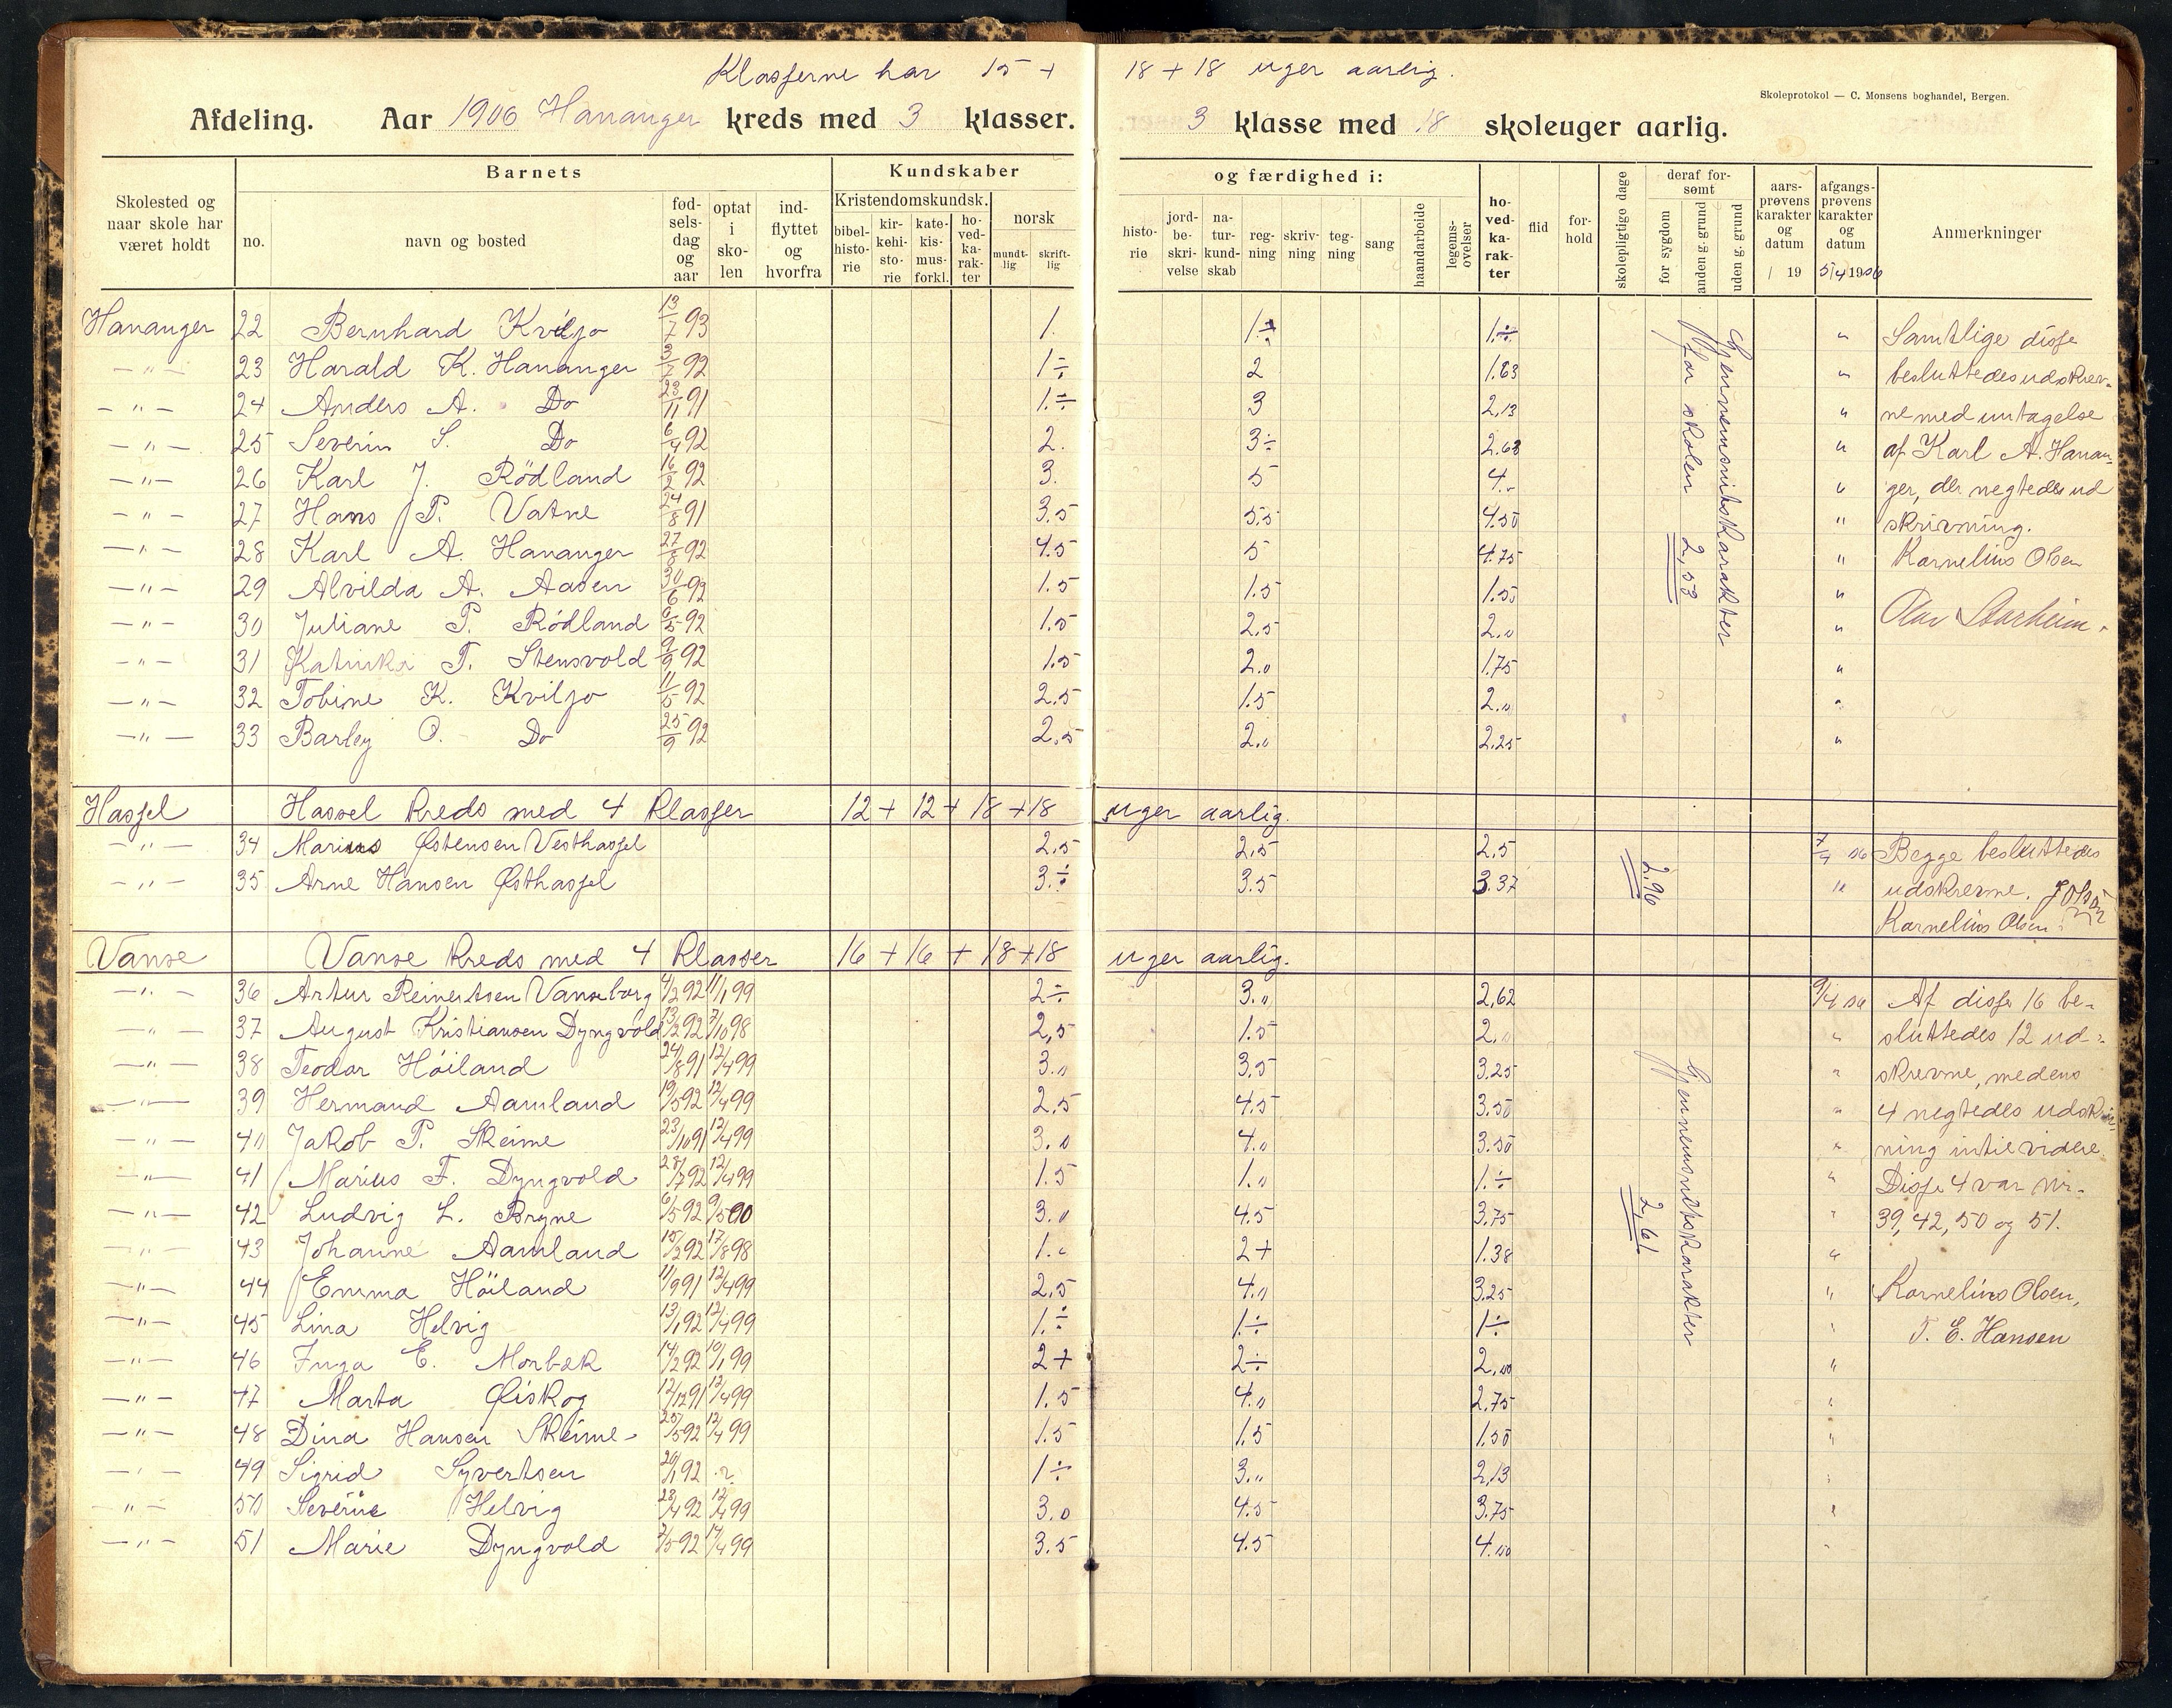 Klasserne har 15 + 18 + 18 uger aarlig.
Skoleprotokol — C. Monsens boghandel, Bergen.
Afdeling. Aar 1906 Hananger kreds med 3 klasser. 3 klasse med 18 skoleuger aarlig.
Skolested og naar skole har været holdt
Barnets
no.
navn og bosted
fødselsdag og aar
optat i skolen
indflyttet og hvorfra
Kundskaber og færdighed i:
Kristendomskundsk.
bibelhistorie
kirkehistorie
katekismusforkl.
hovedkarakter
norsk
mundtlig
skriftlig
historie
jordbeskrivelse
naturkundskab
regning
skrivning
tegning
sang
haandarbeide
legemsøvelser
hovedkarakter
flid
forhold
skolepligtige dage
deraf forsømt
for sygdom
anden g. grund
uden g. grund
aarsprøvens karakter og datum / 19
afgangsprøvens karakter og datum 5/4 1906
Anmerkninger
Hananger 22 Bernhard Kviljo 13/7 93 1. 1÷ 1.÷ " Samtlige disse
— " — 23 Harald K. Hananger 3/7 92 1÷ 2 1.63 " besluttedes udskrev-
— " — 24 Anders A. Do 23/11 91 1.÷ 3 2,13 " ne med untagelse
— " — 25 Severin S. Do 6/4 92 2. 3÷ 2.63 " af Karl A. Hanan-
— " — 26 Karl J. Rödland 16/2 92 3. 5 4.- " ger, der negtedes ud
— " — 27 Hans P. Vatne 24/8 91 3.5 5.5 4.50 " skrivning.
— " — 28 Karl A. Hananger 27/8 92 4.5 5 4.75 " Kornelius Olsen
— " — 29 Alvilda A. Aasen 30/6 92 1.5 1.5 1.50 "
— " — 30 Juliane P. Rödland 6/5 92 1.5 2.5 2.0 " Olav Starheim.
— " — 31 Katinka T. Stensvold 9/9 92 1.5 2.0 1.75 "
— " — 32 Tobine K. Kviljo 11/5 92 2.5 1.5 2.0 "
— " — 33 Barley O. Do 25/9 92 2.5 2.0 2.25 "
Gjennemsnitskarakter
for skolen 2,53
Hassel Hassel kreds med 4 klasser 12 + 12 + 18 + 18 uger aarlig.
— " — 34 Marius Østensen Vesthassel 2.5 2.5 2.5 7/4 06 Begge besluttedes
— " — 35 Arne Hansen Østhassel 3.÷ 3.5 3.37 " udskrevne.
2.96
Kornelius Olsen
Vanse Vanse kreds med 4 klasser 16 + 16 + 18 + 18 uger aarlig.
— " — 36 Artur Reinertsen Vanseborg 4/2 92 11/1 99 2÷ 3.0 2,62 9/4 06 Af disse 16 be-
— " — 37 August Kristiansen Dyngvold 13/2 92 3/10 98 2,5 1.5 2.0 " sluttedes 12 ud-
— " — 38 Teodor Höiland 24/8 91 12/4 99 3.0 3.5 3.25 " skrevne, medens
— " — 39 Hermand Aamland 19/5 92 12/4 99 2.5 4.5 3.50 " 4 negtedes udskriv-
— " — 40 Jakob P. Skeime 23/10 91 12/4 99 3.0 4.0 3.50 " ning intil videre.
— " — 41 Marius F. Dyngvold 28/7 92 12/4 99 1.5 1.0 1.÷ " Disse 4 var nr.
— " — 42 Ludvig L. Bryne 6/5 92 9/5 00 3.0 4.5 3.75 " 39, 42, 50 og 51.
— " — 43 Johanne Aamland 15/2 92 17/8 98 1.0 2+ 1.38 "
— " — 44 Emma Höiland 11/9 91 12/4 99 2.5 4.0 3.25 " Kornelius Olsen,
— " — 45 Lina Helvig 13/1 92 12/4 99 1.÷ 1.÷ 1÷ " T. E. Hansen
— " — 46 Inga E. Morbæk 14/2 92 19/1 99 2+ 2÷ 2.00 "
— " — 47 Marta Øiskog 12/12 91 12/4 99 1.5 4.0 2.75 "
— " — 48 Dina Hansen Skeime 25/5 92 12/4 99 1.5 1.5 1.50 "
— " — 49 Sigrid Syvertsen 20/1 92 ? 1÷ 3.0 2,13 "
— " — 50 Severine Helvig 23/4 92 12/4 99 3.0 4.5 3.75 "
— " — 51 Marie Dyngvold 3/5 92 14/4 99 3.5 4.5 4.00 "
Gjennemsnitskarakter
2,61